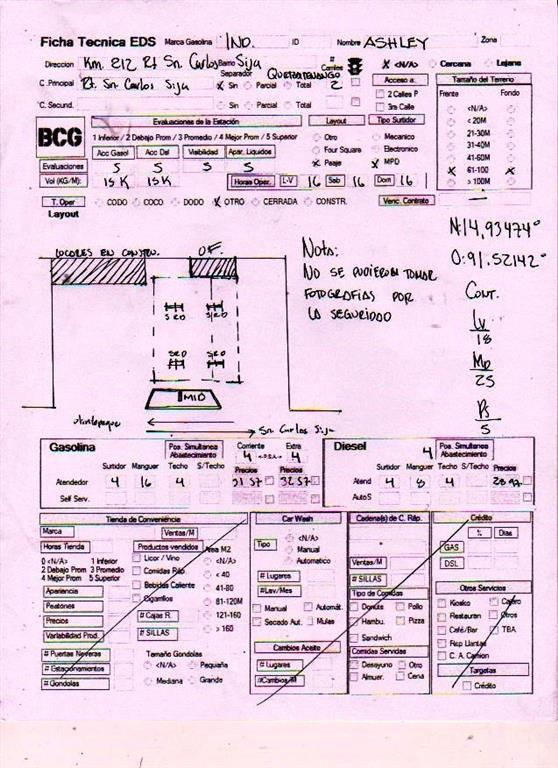 Ficha Tecnica EDS Marca Gasolina IND. ID Nombre ASHLEY Zona
Direccion Km. 212 Rt Sn. Carlos Barrio Sija # Carriles X <N/A> Cercana Lejana
C. Principal Rt. Sn. Carlos Sija Separador QUETZALTENANGO X Sin Parcial Total 2 Acceso a: Tamaño del Terreno
C. Secund. Sin Parcial Total 2 Calles P 3ra Calle Frente Fondo
<N/A>
< 20M
21-30M
31-40M
41-60M
X 61-100 X
> 100M
BCG Evaluaciones de la Estación Layout Tipo Surtidor
1 Inferior / 2 Debajo Prom / 3 Promedio / 4 Mejor Prom / 5 Superior Otro Mecanico
Acc Gasol Acc Dsl Visibilidad Apar. Liquidos Four Square Electronico
Evaluaciones 5 5 5 5 X Peaje X MPD
Vol (KG/M): 15K 15K Horas Oper. L-V 16 Sab 16 Dom 16
T. Oper CODO COCO DODO X OTRO CERRADA CONSTR. Venc. Contrato —
Layout
N:14,93474°
O:91.52142°
LOCALES EN CONSTRU. OF.
Nota:
NO SE PUDIERON TOMAR
FOTOGRAFIAS POR
LA SEGURIDAD
Cont.
Lv
18
Mp
25
Ps
5
SRD SRD
SRD SRD
MID
Sn. Carlos Sija
Gasolina Pos. Simultanea Abastecimiento Corriente 4 <-P.S.A.-> Extra 4
Surtidor Manguer Techo S/Techo Precios Precios
Atendedor 4 16 4 31.57 32.57
Self Serv.
Diesel 4 Pos. Simultanea Abastecimiento
Surtidor Manguer Techo S/Techo Precios
Atend 4 8 4 28.97
AutoS
Tienda de Conveniencia
Marca Ventas/M
Horas Tienda Productos vendidos Area M2
0 <N/A> 1 Inferior
2 Debajo Prom 3 Promedio
4 Mejor Prom 5 Superior
Licor / Vino
Comidas Ráp
Bebidas Caliente
Cigarrillos
<N/A>
< 40
41-80
81-120M
121-160
> 160
Apariencia
Peatones
Precios
Variabilidad Prod.
# Cajas R.
# SILLAS
# Puertas Neveras
# Estacionamientos
# Gondolas
Tamaño Gondolas
<N/A> Pequeña
Mediana Grande
Car Wash
Tipo <N/A>
Manual
Automatico
# Lugares
#Lav/Mes
Manual Automát.
Secado Aut. Mulas
Cambios Aceite
# Lugares
#Cambios/M
Cadena(s) de C. Ráp.
Ventas/M
# SILLAS
Tipo de Comidas
Donuts Pollo
Hambu. Pizza
Sandwich
Comidas Servidas
Desayuno Otro
Almuer. Cena
Crédito
% Dias
GAS
DSL
Otros Servicios
Kiosko Cajero
Restauran Otros
Café/Bar TBA
Rep Llantas
C. A. Camion
Tarjetas
Crédito